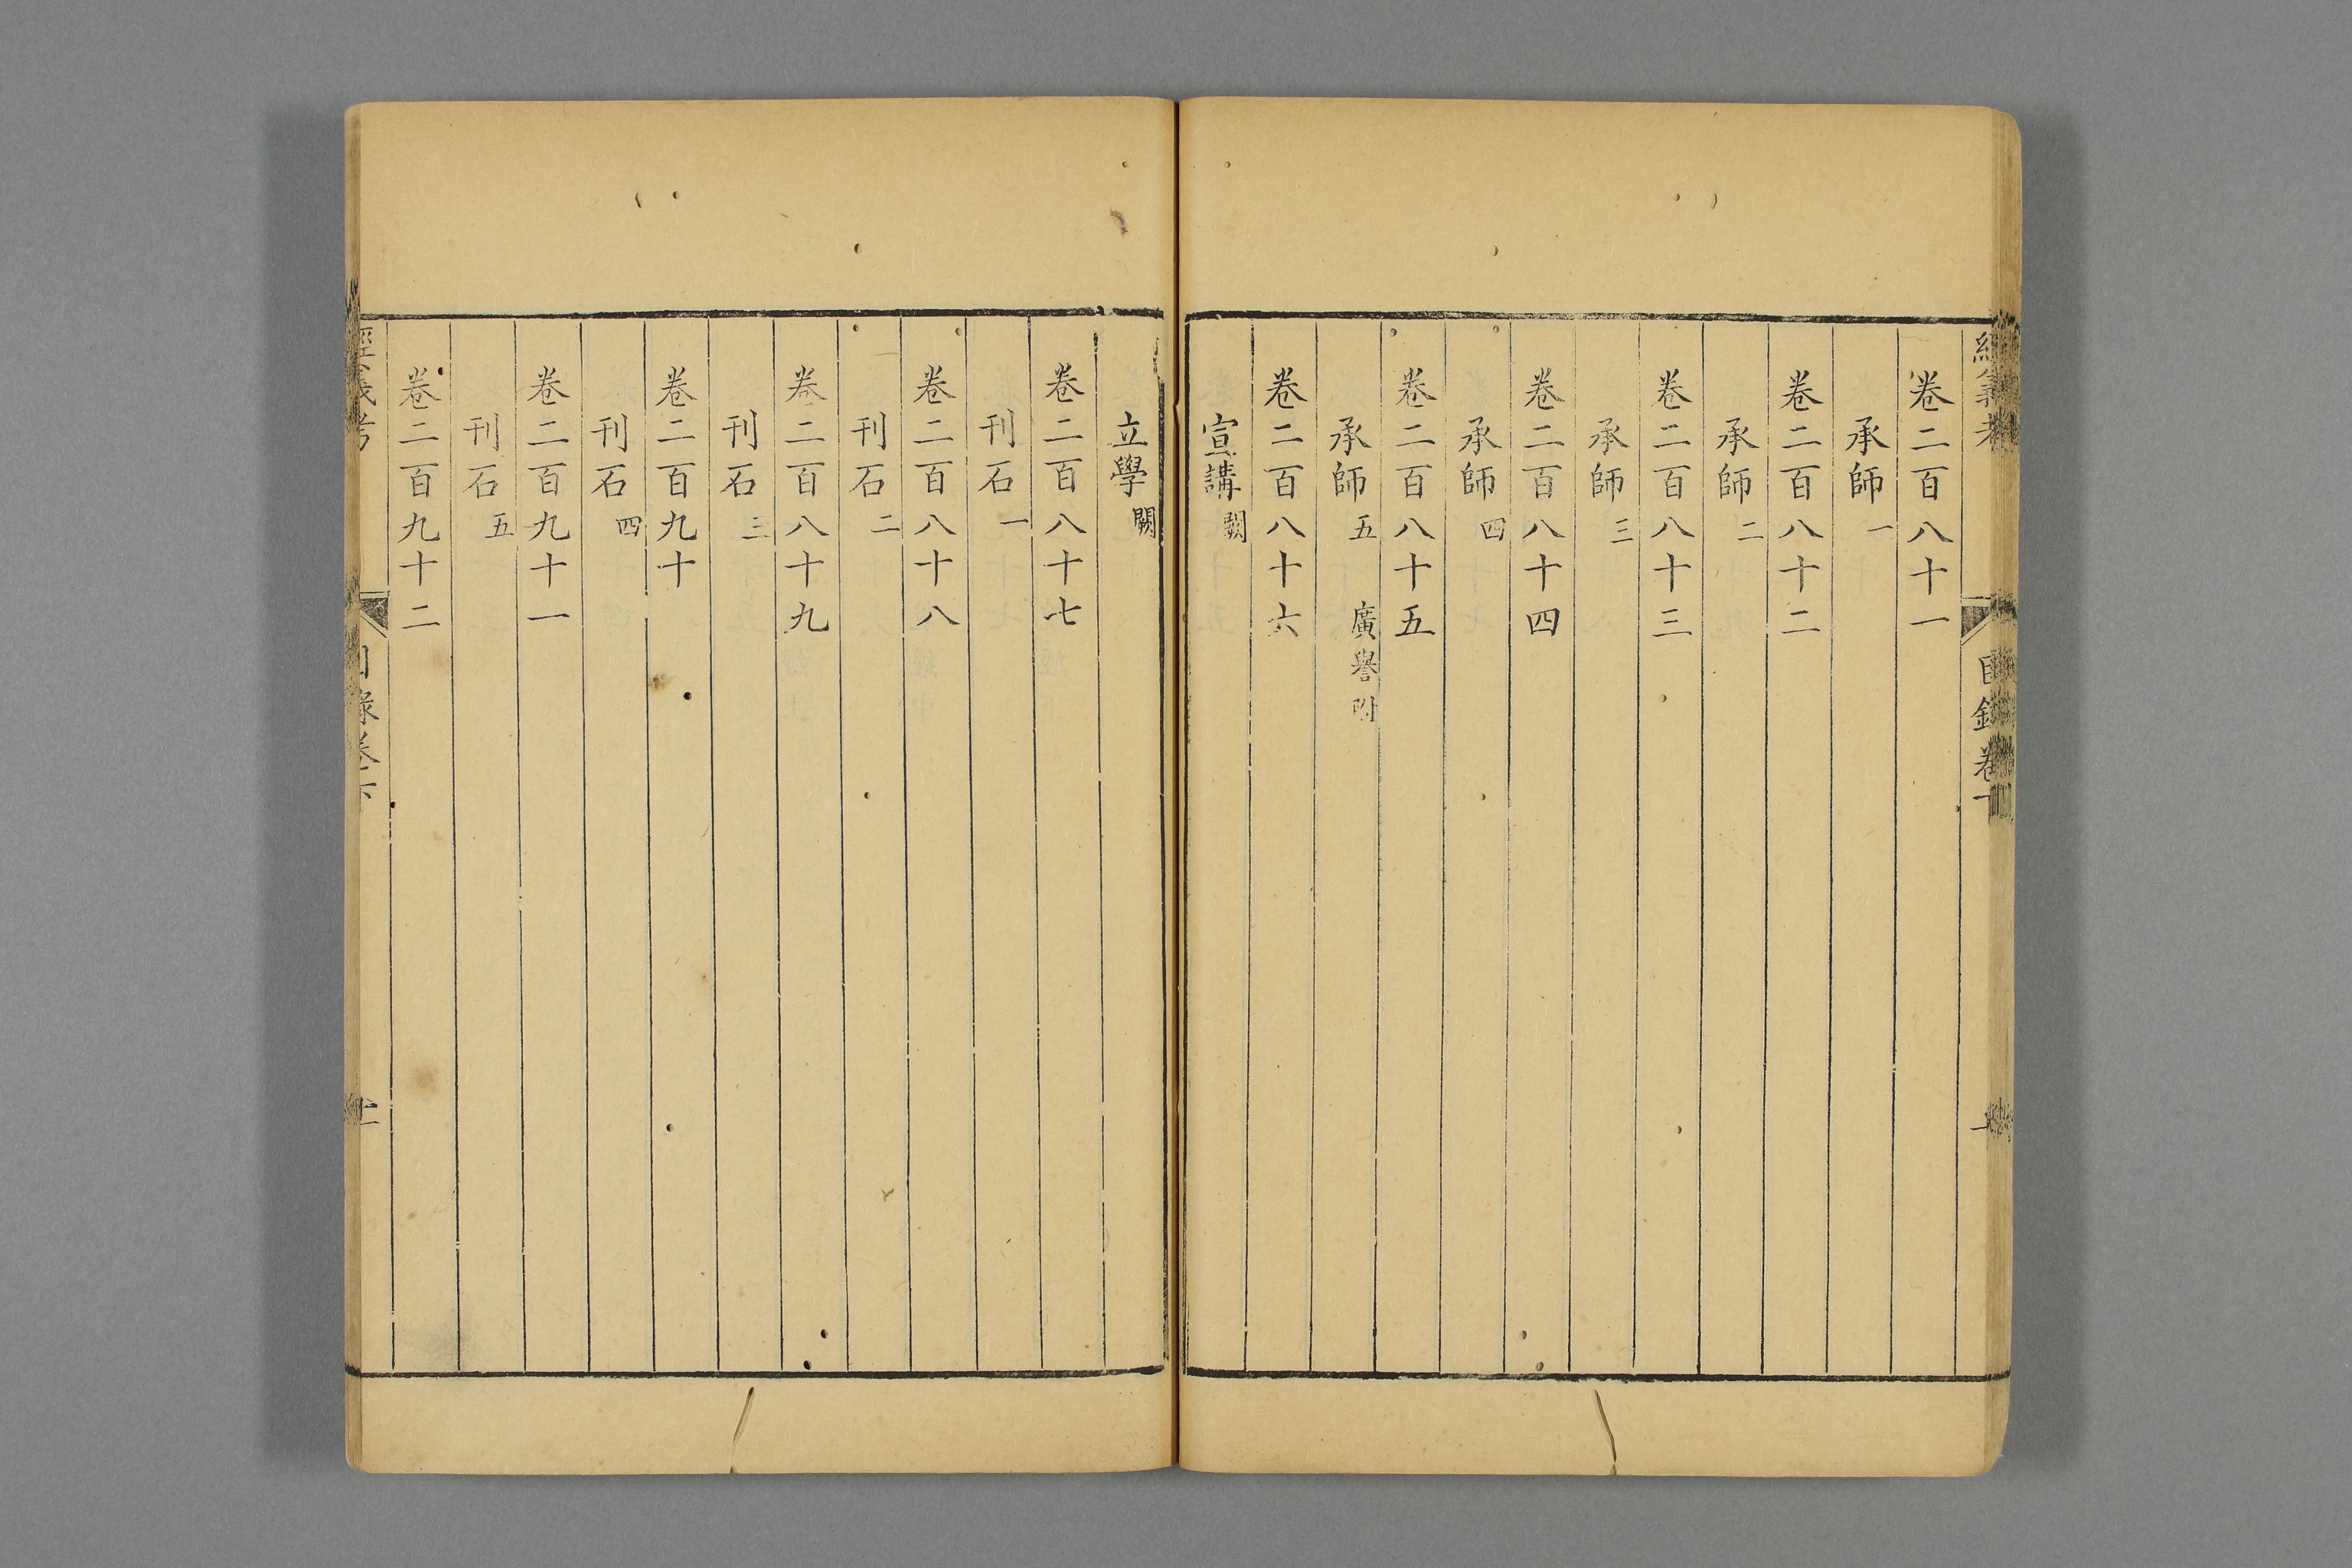 卷二百八十一
承師一
卷二百八十二
承師二
卷二百八十三
承師三
卷二百八十四
承師四
卷二百八十五
承師五 廣譽附
卷二百八十六
宣講闕
立學闕
卷二百八十七
刊石一
卷二百八十八
刊石二
卷二百八十九
刊石三
卷二百九十
刊石四
卷二百九十一
刊石五
卷二百九十二
經義考 目錄卷下